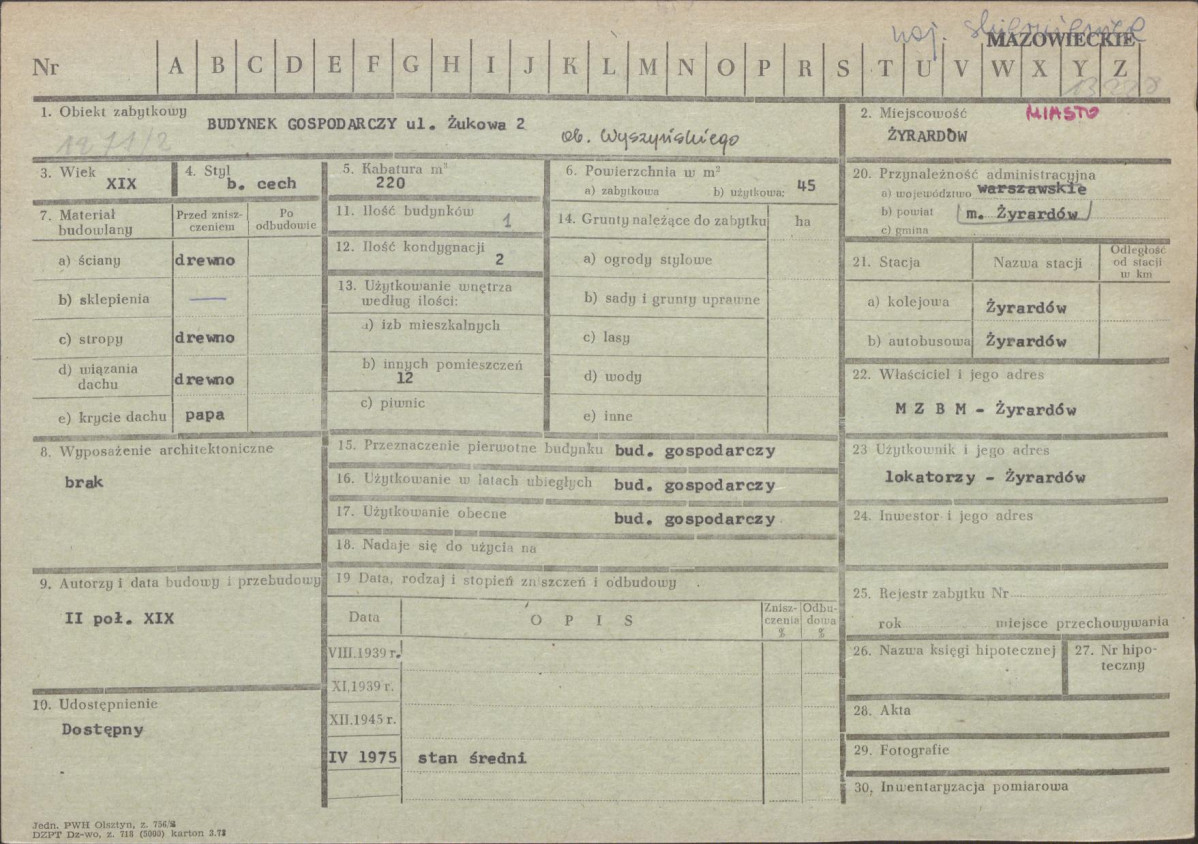 woj. skierniewickie
MAZOWIECKIE
Nr A B C D E F G H I J K L M N O P R S T U V W X Y Z
13228
1. Obiekt zabytkowy
BUDYNEK GOSPODARCZY ul. Żukowa 2
1271/2
ob. Wyszyńskiego
2. Miejscowość
MIASTO
ŻYRARDÓW
3. Wiek
XIX
4. Styl
b. cech
5. Kabatura m³
220
6. Powierzchnia w m²
a) zabytkowa b) użytkowa: 45
20. Przynależność administracyjna
a) województwo warszawskie
b) powiat m. Żyrardów
c) gmina
7. Materiał budowlany
Przed zniszczeniem
Po odbudowie
a) ściany drewno
b) sklepienia —
c) stropy drewno
d) wiązania dachu drewno
e) krycie dachu papa
11. Ilość budynków 1
12. Ilość kondygnacji 2
13. Użytkowanie wnętrza
według ilości:
a) izb mieszkalnych
b) innych pomieszczeń
12
c) piwnic
14. Grunty należące do zabytku ha
a) ogrody stylowe
b) sady i grunty uprawne
c) lasy
d) wody
e) inne
21. Stacja Nazwa stacji Odległość od stacji w km
a) kolejowa Żyrardów
b) autobusowa Żyrardów
22. Właściciel i jego adres
M Z B M - Żyrardów
8. Wyposażenie architektoniczne
brak
15. Przeznaczenie pierwotne budynku bud. gospodarczy
16. Użytkowanie w latach ubiegłych bud. gospodarczy
17. Użytkowanie obecne bud. gospodarczy
18. Nadaje się do użycia na
23 Użytkownik i jego adres
lokatorzy - Żyrardów
24. Inwestor i jego adres
9. Autorzy i data budowy i przebudowy
II poł. XIX
19 Data, rodzaj i stopień zniszczeń i odbudowy
Data O P I S Zniszczenia % Odbudowa %
VIII.1939 r.
XI.1939 r.
XII.1945 r.
IV 1975 stan średni
25. Rejestr zabytku Nr
rok miejsce przechowywania
26. Nazwa księgi hipotecznej
27. Nr hipoteczny
10. Udostępnienie
Dostępny
28. Akta
29. Fotografie
30. Inwentaryzacja pomiarowa
Jedn. PWH Olsztyn, z. 756/
DZPT Dz-wo, z. 718 (5000) karton 3.73